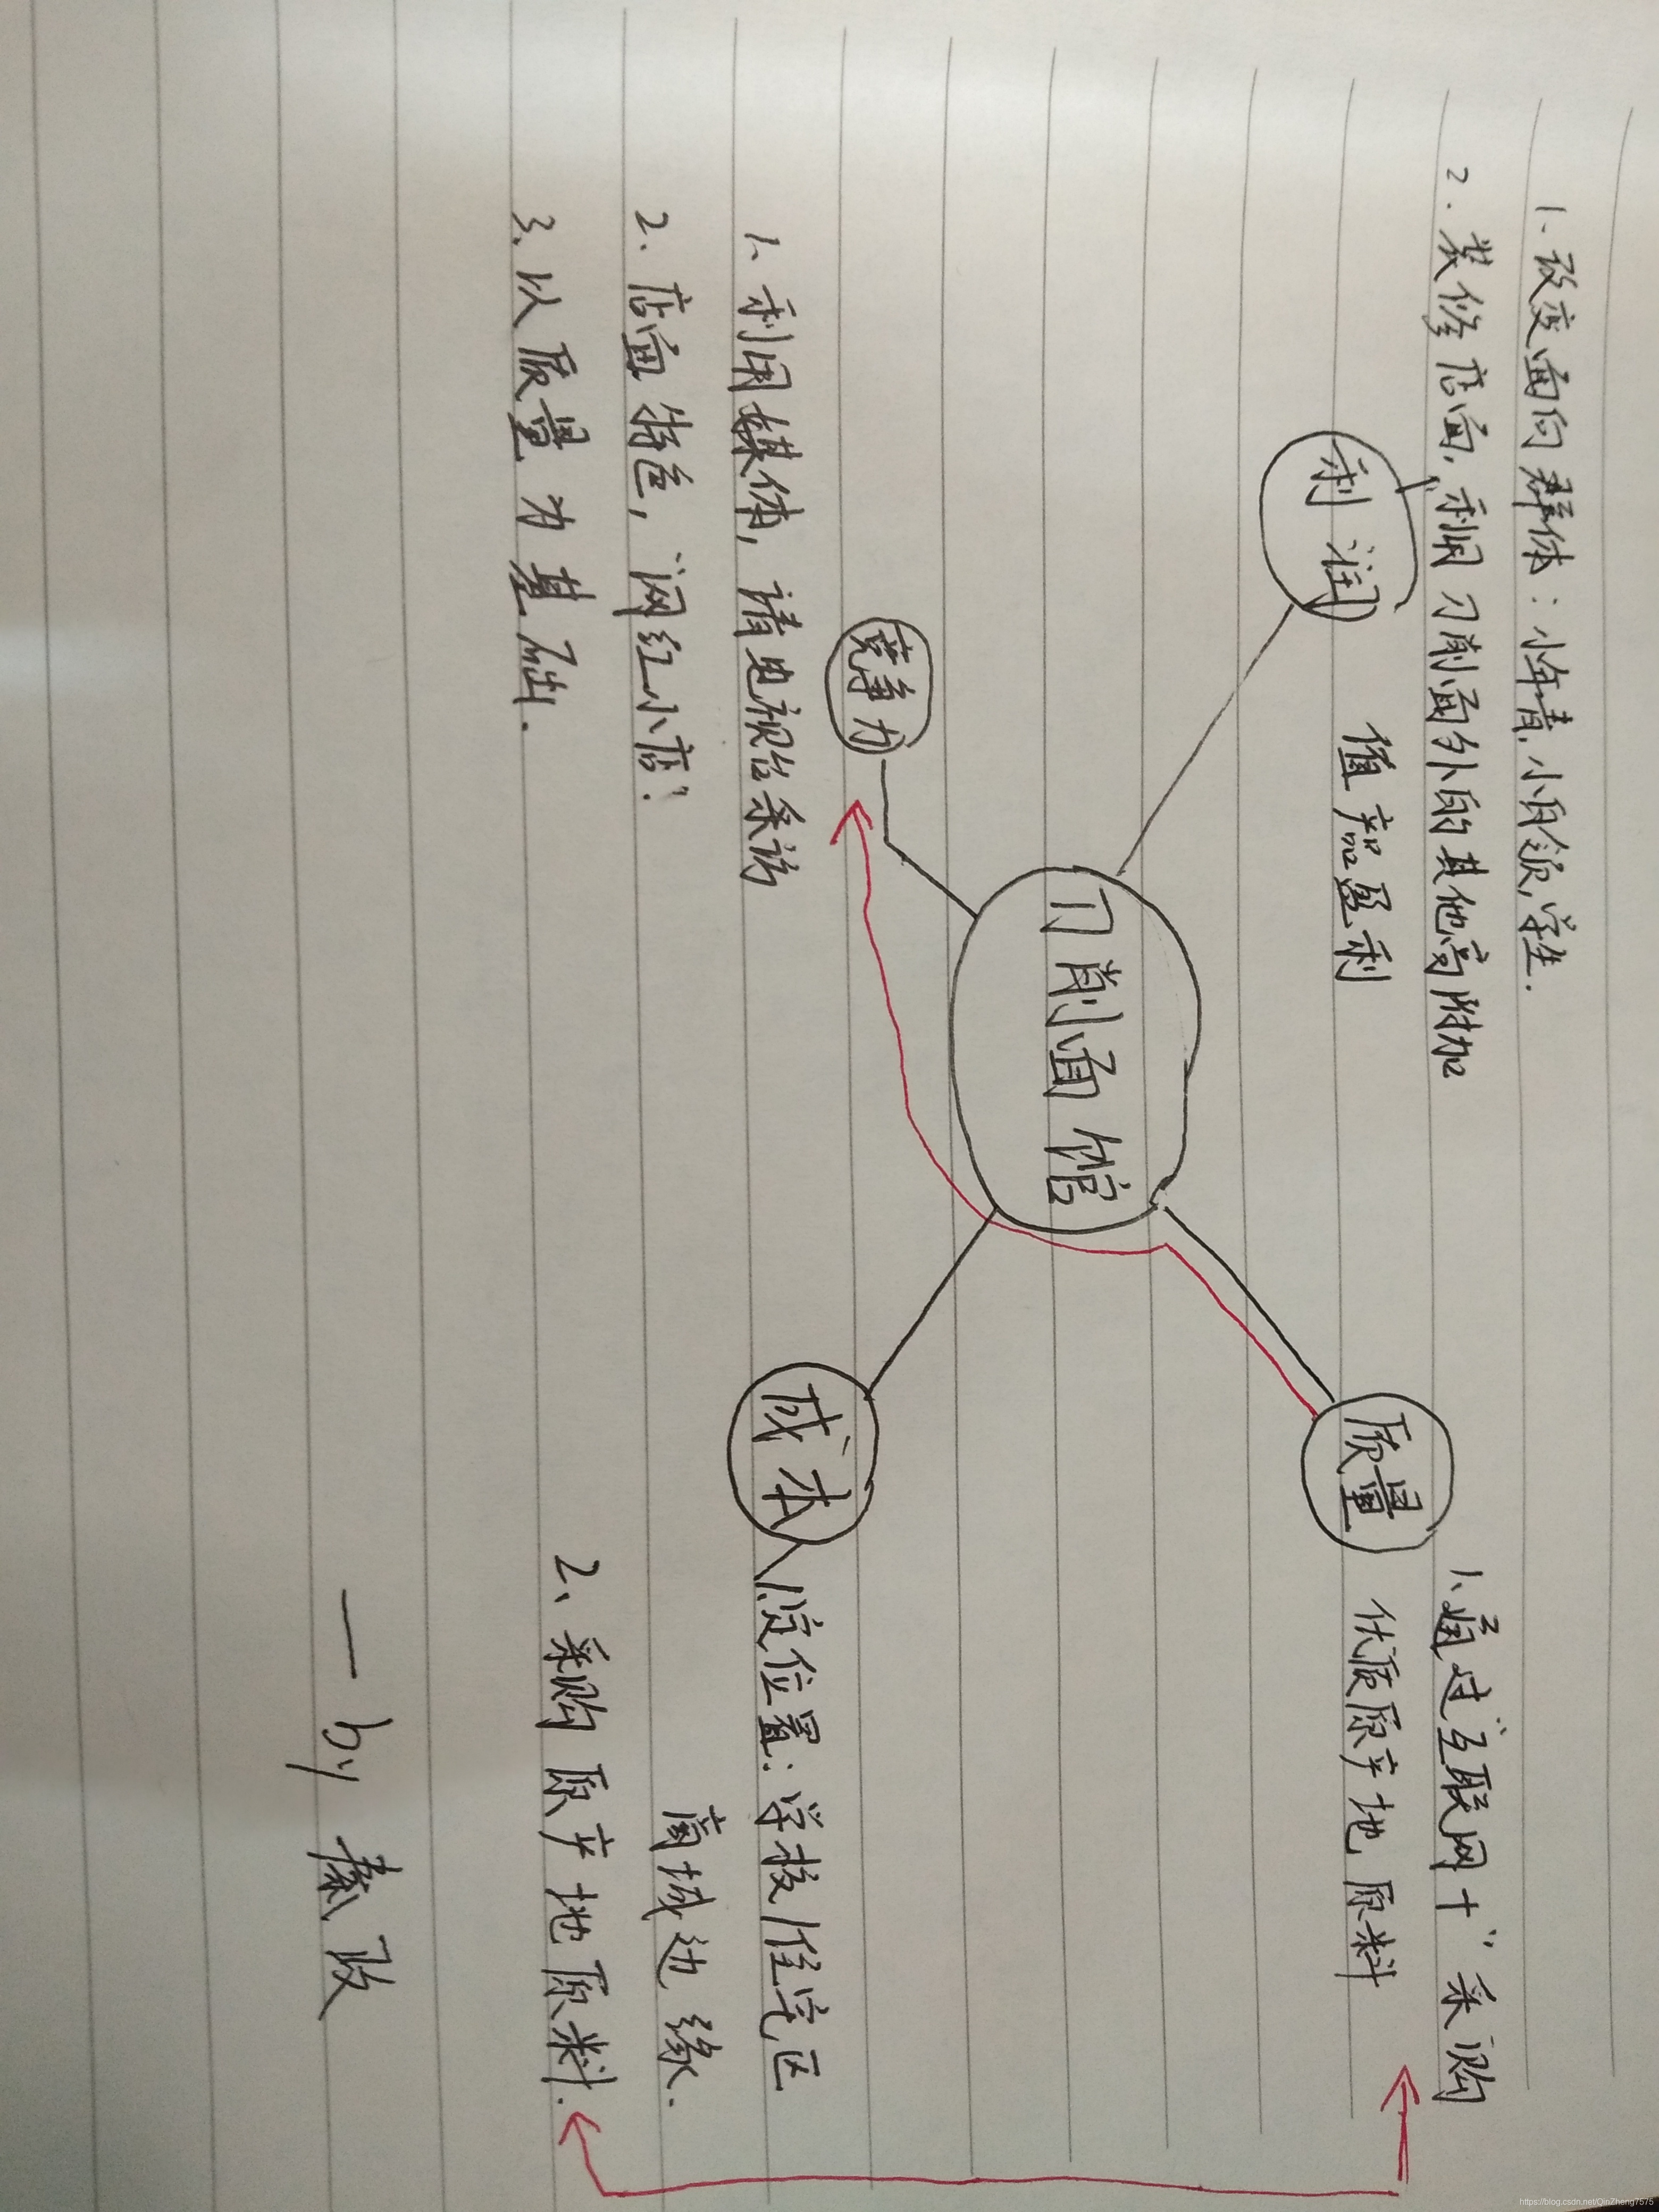 1、改变面向群体：小年青、小白领，学生.
2. 装修店面，利用刀削面外的其他高附加
值产品盈利
利润
1、通过“互联网+”采购
优质原产地原料
质量
刀削面馆
竞争力
1、利用媒体，请电视台采访
2、店面特色，网红小店！
3、以质量为基础.
成本
1、定位置：学校/住宅区
商城边缘.
2、采购原产地原料.
— by 秦政
https://blog.csdn.net/QinZheng7575